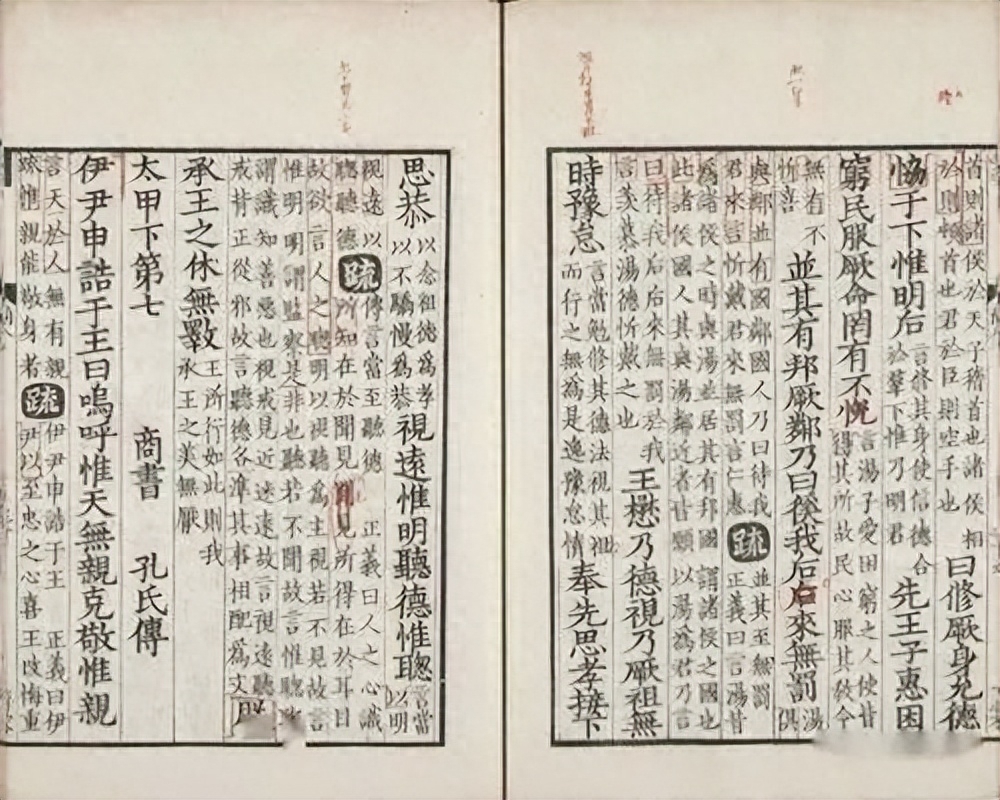 首則諸侯於天子稽首也諸侯相
於則頓首也君於臣則空手也
曰修厥身允德
恊于下惟明后
言修其身使信德合
於羣下惟乃明君
先王子惠困
窮民服厥命罔有不悅
言湯子愛困窮之人使皆
得其所故民心服其敎令
無有不
忻喜
並其有邦厥鄰乃曰徯我后后來無罰
湯
俱
與鄰並有國鄰國人乃曰待我
君來言忻戴君來無罰言仁惠
疏
並其至無罰
正義曰言湯昔
爲諸侯之時與湯並居其有邦國謂諸侯之國也
此諸侯國人其與湯鄰近者皆願以湯爲君乃言
曰待我后后來無罰於我
言羡慕湯德忻戴之也
王懋乃德視乃厥祖無
時豫怠
言當勉修其德法視其祖
而行之無為是逸豫怠惰
奉先思孝接下
思恭
以念祖德爲孝
以不驕慢爲恭
視遠惟明聽德惟聰
言當
以明
視遠以
聰聽德
疏
傳言當至聽德 正義曰人之心識
所知在於聞見聞見所得在於耳目
故欲言人之聰明以視聽爲主視若不見故言
惟明明謂監察是非也聽若不聞故言惟聰聰
謂識知善惡也視戒見近迷遠故言視遠聽
戒背正從邪故言聽德各準其事相配爲文
厥
承王之休無斁
王所行如此則我
承王之美無厭
太甲下第七 商書 孔氏傳
伊尹申誥于王曰嗚呼惟天無親克敬惟親
言天於人無有親
疎惟親能敬身者
疏
伊尹申誥于王 正義曰伊
尹以至忠之心喜王改悔重